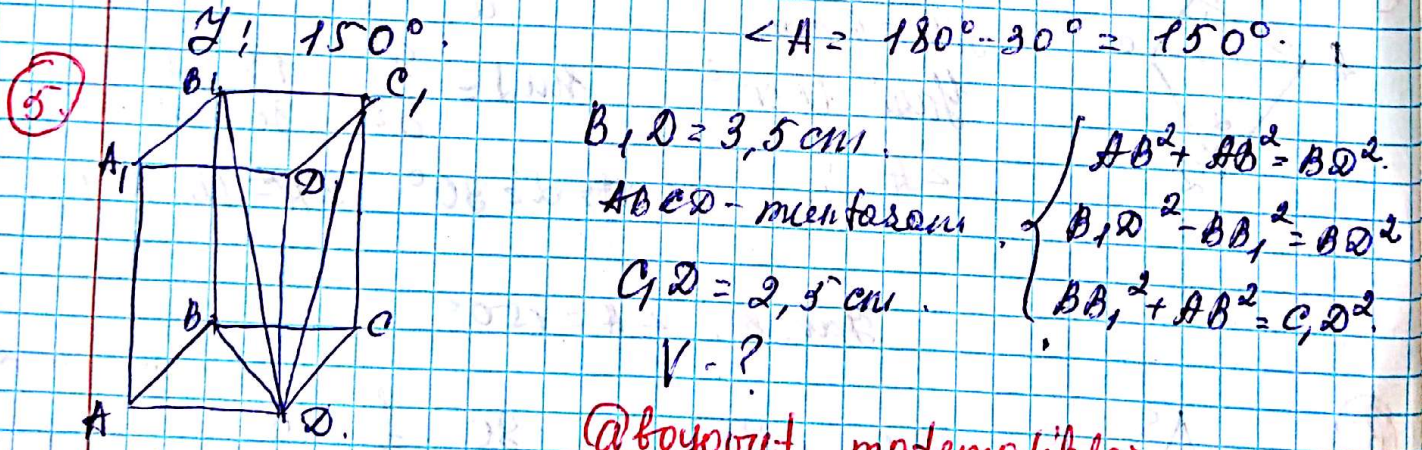 J: 150°.
<A = 180° - 30° = 150°.
5.
B₁ C₁
A₁ D₁
B C
A D.
B₁D = 3,5 cm.
ABCD - muntazam.
C₁D = 2,5 cm.
V - ?
AB² + AB² = BD².
B₁D² - BB₁² = BD²
BB₁² + AB² = C₁D².